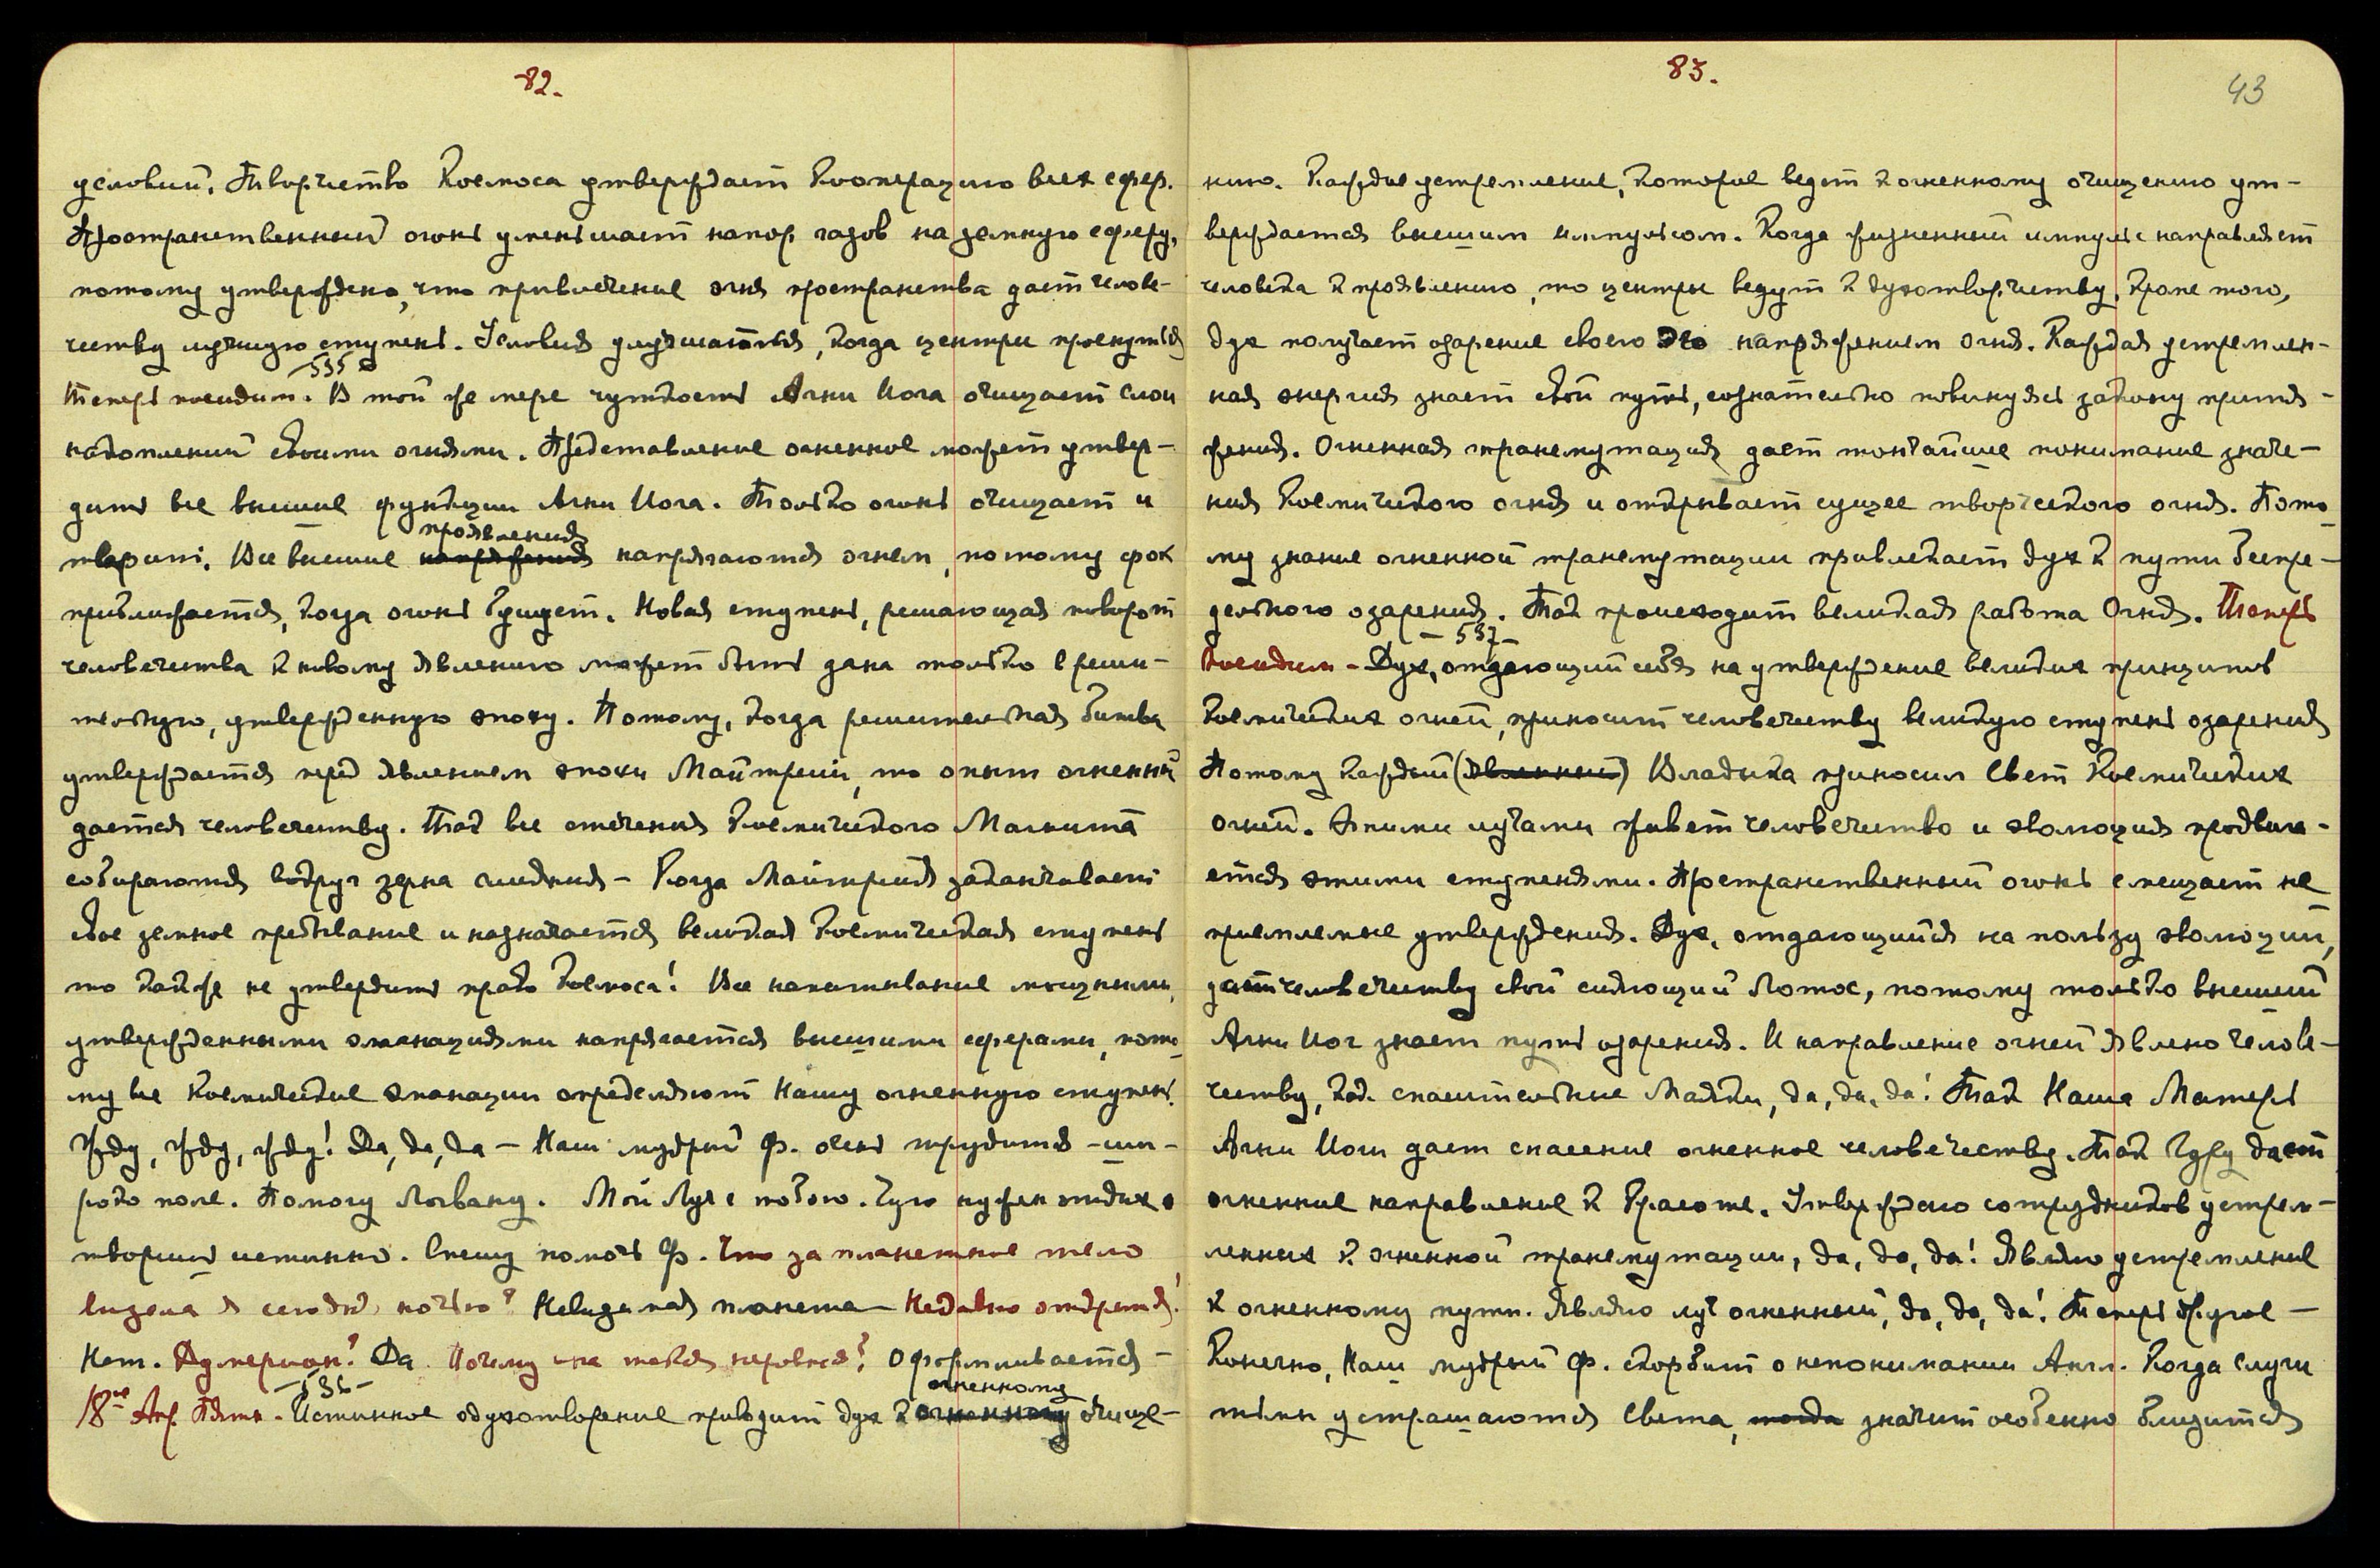 82.
условий. Творчество Космоса утверждает кооперацию всех сфер.
Пространственный огонь уменьшает напор газов на земную сферу,
потому утверждено, что привлечение огня пространства дает челове-
честву лучшую ступень. Условия улучшаются, когда центры проснутся
-535-
Теперь посидим. В той же мере чуткость Агни Йога очищает слои
накоплений своими огнями. Представление огненное может утвер-
дить все высшие функции Агни Йога. Только огонь очищает и
проявления
творит. Все высшие напряжения напрягаются огнем, потому срок
приближается, когда огонь бушует. Новая ступень, решающая поворот
человечества к новому явлению может быть дана только в реши-
тельную, утвержденную эпоху. Потому, когда решительная битва
утверждается перед явлением эпохи Майтрейи, то опыт огненный
дается человечеству. Так все стечения Космического Магнита
собираются вокруг зерна слияния – Когда Майтрейя заканчивает
свое земное пребывание и назначается великая космическая ступень
то как же не утвердить право Космоса! Все напитывание мощными,
утвержденными эманациями напрягается высшими сферами, пото-
му все космические эманации определяют Нашу огненную ступень.
Жду, жду, жду! Да, да, да – Наш мудрый Ф. очень трудится – ши-
роко поле. Помогу Логвану. Мой Луч с тобою. Чую нужен отдых.
творить истинно. Спешу помочь Ф. Что за планетное тело
видела я сегодня ночью? Невидимая планета – Недавно открытая!
Нет. Да Почему она такая неровная? оформливается –
-536-
огненному
18ое Апр. Пятн. - Истинное одухотворение приводит дух к огненному очище-
83.
43
нию. Каждое устремление, которое ведет к огненному очищению ут-
верждается высшим импульсом. Когда жизненный импульс направляет
человека к проявлению, то центры ведут к духотворчеству. Кроме того,
дух получает озарение своего Эго напряжением огня. Каждая устремлен-
ная энергия знает свой путь, сознательно повинуясь закону притя-
жения. Огненная трансмутация дает тончайшее понимание значе-
ния Космического огня и открывает сущее творческого огня. Пото-
му знание огненной трансмутации привлекает дух к пути беспре-
дельного озарения. Так происходит великая работа Огня. Теперь
-537-
посидим - Дух, отдающий себя на утверждение великих принципов
космических огней, приносит человечеству великую ступень озарения
Потому каждый (явленный) Владыка приносил Свет Космических
огней. Этими лучами живет человечество и эволюция продвига-
ется этими ступенями. Пространственный огонь смещает не-
приемлемые утверждения. Дух, отдающийся на пользу эволюции,
дает человечеству свой сияющий Лотос, потому только высший
Агни Йог знает путь озарения. И направление огней явлено челове-
честву, как спасительные Маяки, да, да, да! Так Наша Матерь
Агни Йоги дает спасение огненное человечеству. Так Гуру дает
огненное направление к Красоте. Утверждаю сотрудников устрем-
ленных к огненной трансмутации, да, да, да! Являю устремление
к огненному пути. Являю луч огненный, да, да, да! Теперь другое –
Конечно, Наш мудрый Ф. скорбит о непонимании Англ. Когда слуги
тьмы устрашаются Света, тогда значит особенно близится